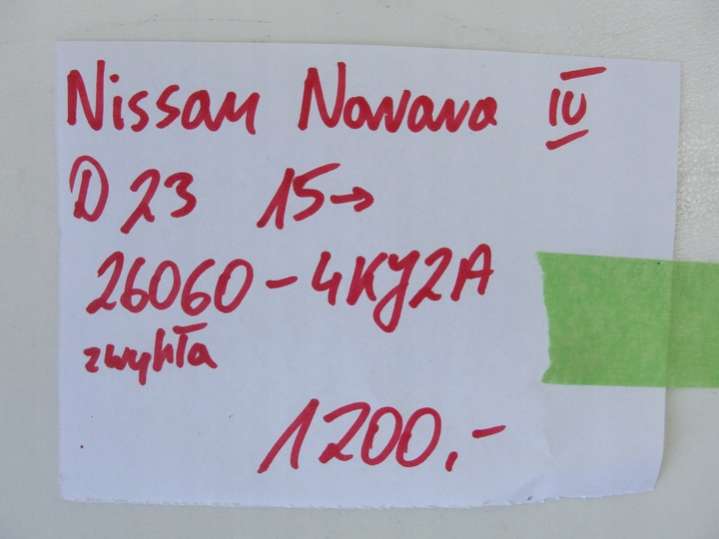 Nissan Navara IV
D23 15→
26060-4KJ2A
zwykła
1200,-